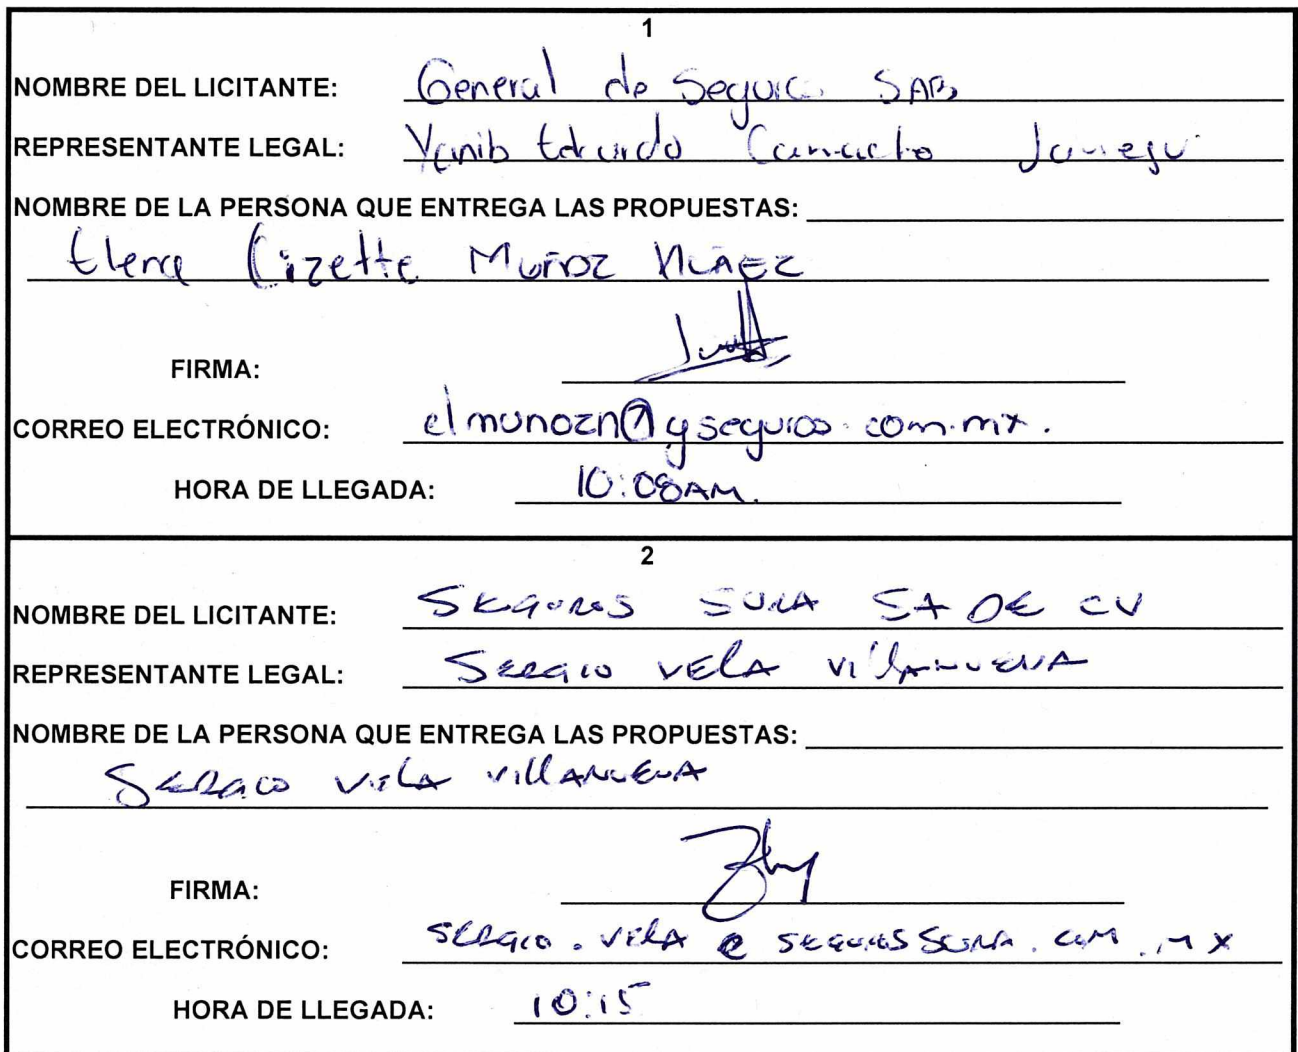 1
NOMBRE DEL LICITANTE: General de Seguros SAB
REPRESENTANTE LEGAL: Yanib Eduardo Camacho
NOMBRE DE LA PERSONA QUE ENTREGA LAS PROPUESTAS:
Elena Lizette Muñoz Nuñez
FIRMA:
CORREO ELECTRÓNICO: elmunozn@gseguros.com.mx.
HORA DE LLEGADA: 10:08AM.
2
NOMBRE DEL LICITANTE: SEGUROS SURA SA DE CV
REPRESENTANTE LEGAL: SERGIO VELA VILLANUEVA
NOMBRE DE LA PERSONA QUE ENTREGA LAS PROPUESTAS:
SERGIO VELA VILLANUEVA
FIRMA:
CORREO ELECTRÓNICO: SERGIO.VELA@SEGUROSSURA.COM.MX
HORA DE LLEGADA: 10:15